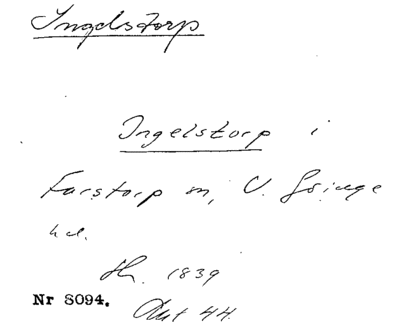 Ingelstorp
Ingelstorp i
Farstorp sn, V. Göinge
hd.
Hr. 1839
Nr 8094. Avt 44